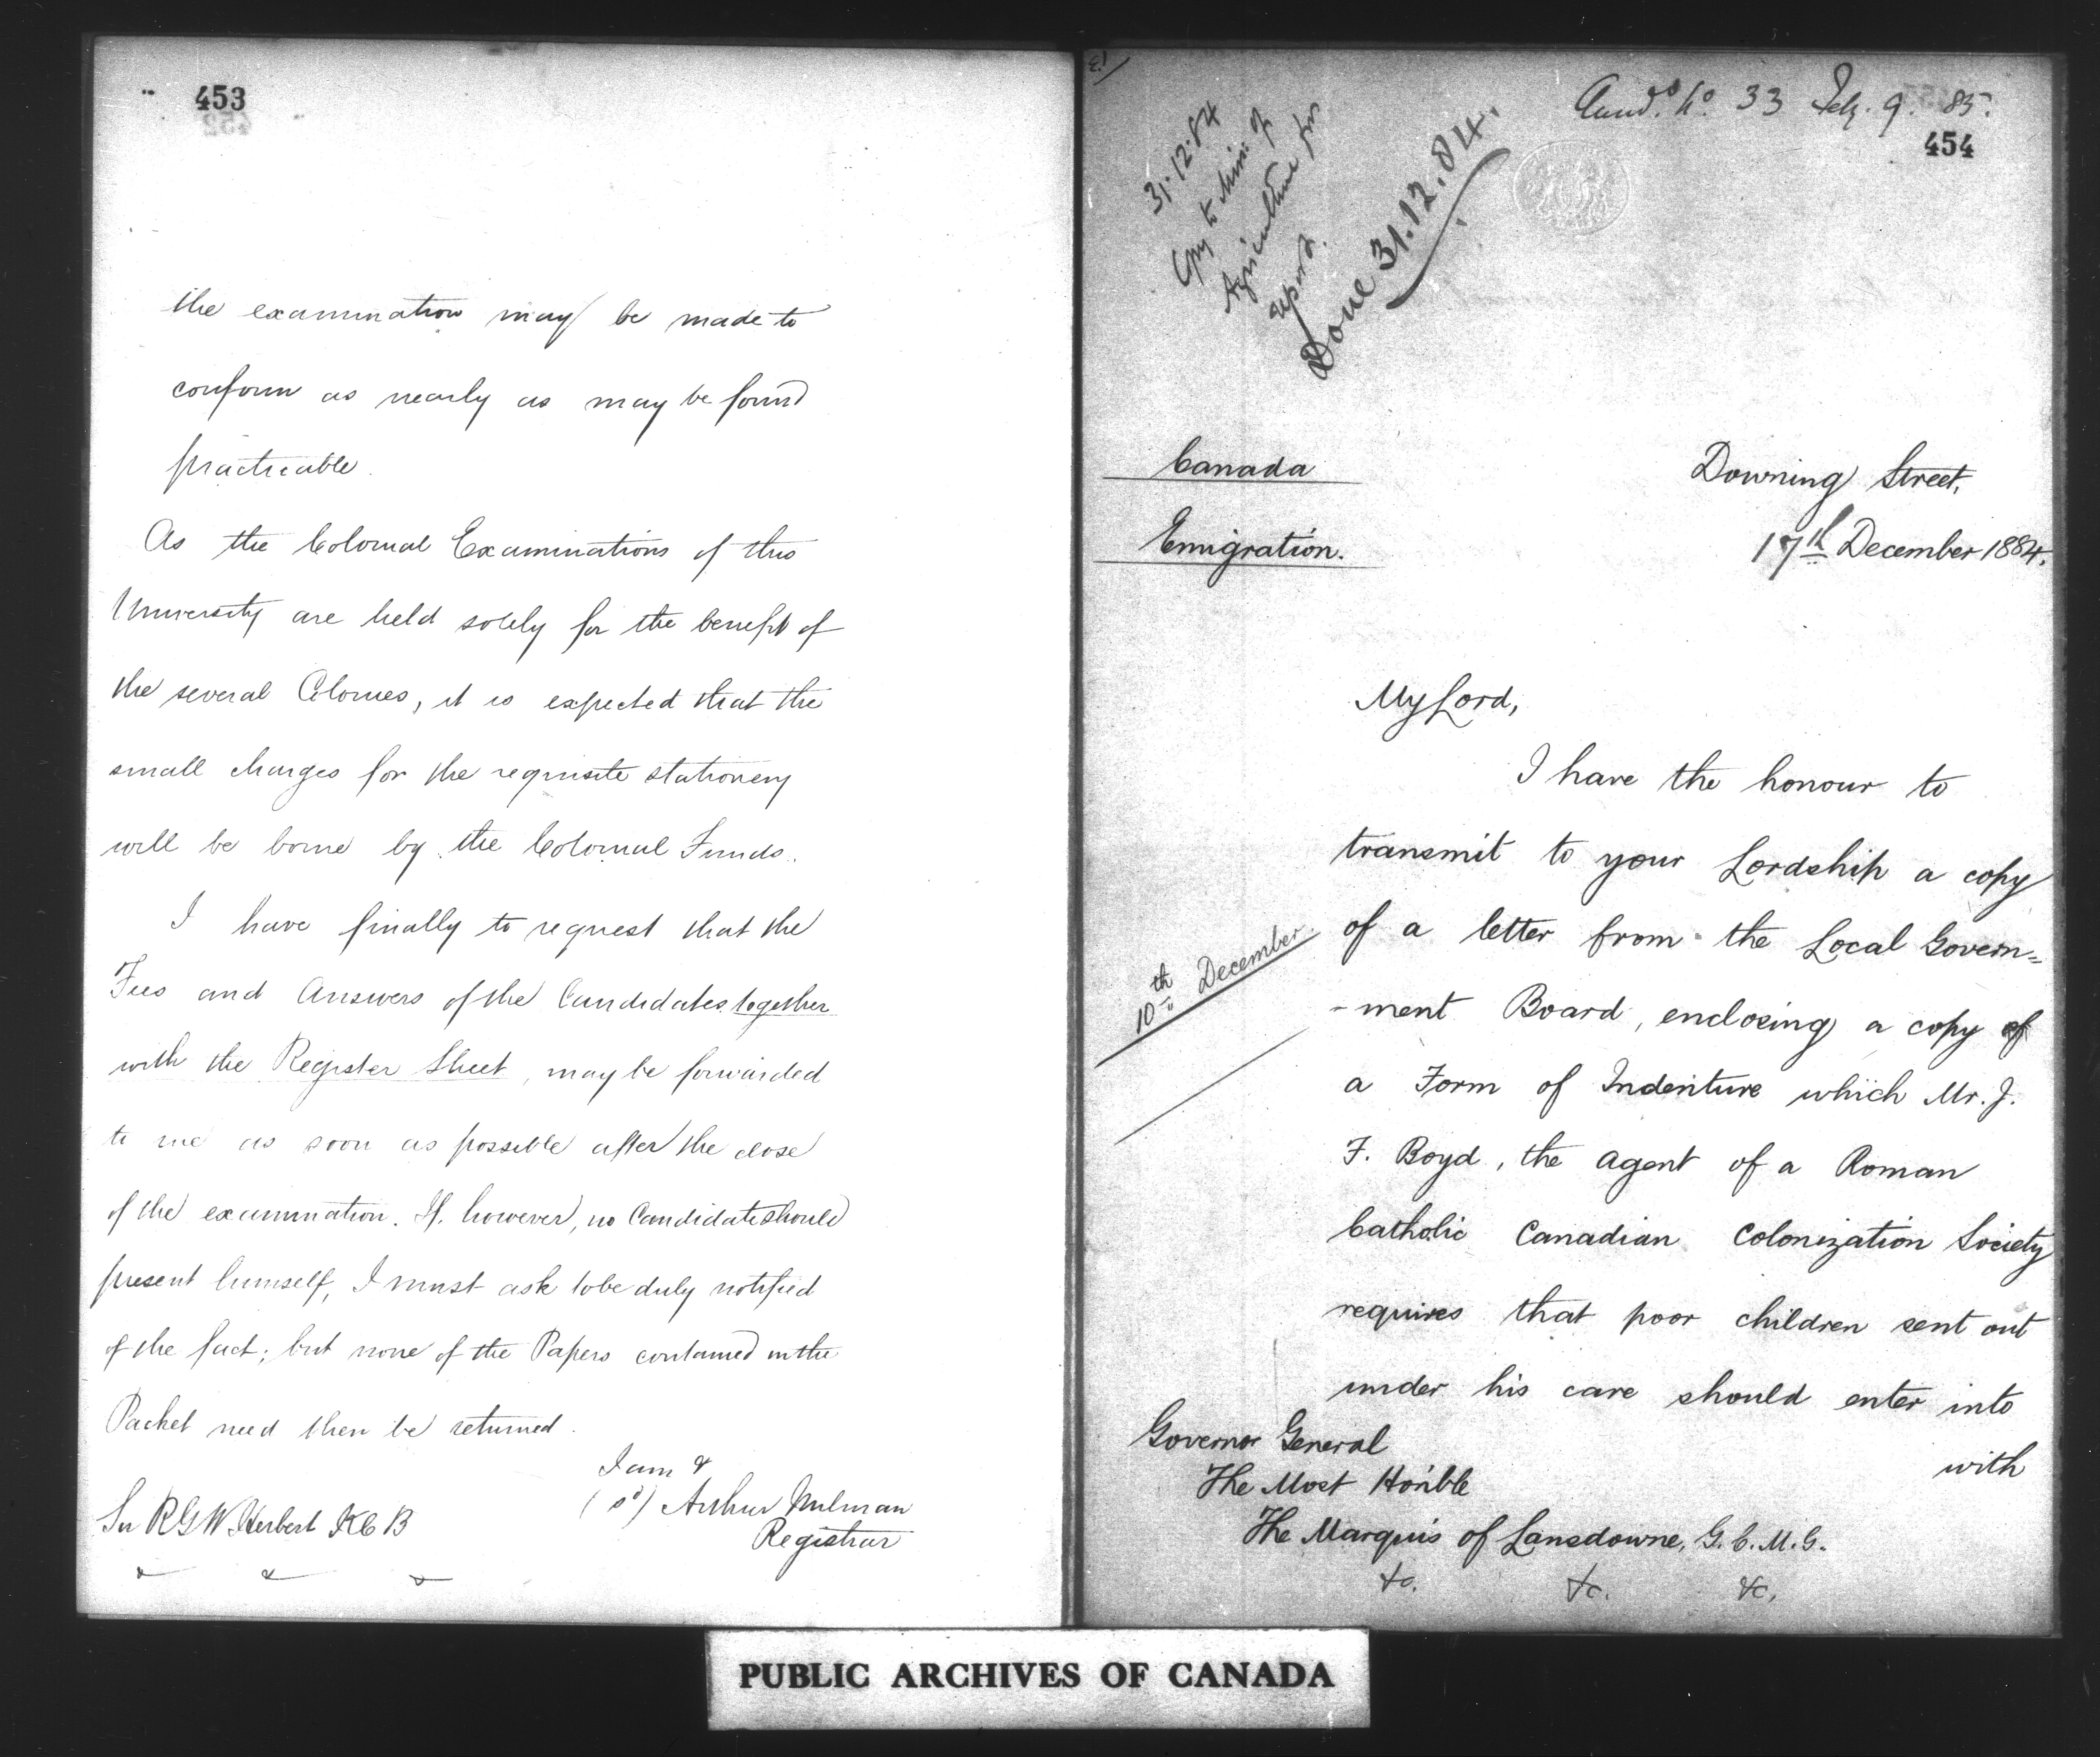 453
the examination may be made to
conform as nearly as may be found
practicable.
As the Colonial Examinations of this
University are held solely for the benefit of
the several Colonies, it is expected that the
small charges for the requisite stationery
will be borne by the Colonial Funds.
I have finally to request that the
Fees and Answers of the Candidates together
with the Register Sheet, may be forwarded
to me as soon as possible after the close
of the examination. If, however, no Candidate should
present himself, I must ask to be duly notified
of the fact; but none of the Papers contained in the
Packet need then be returned.
I am &
(sd) Arthur Milman
Registrar
Sir R G W Herbert K C B
Ansd. No. 33 Feb. 9. 85.
454
31.12.84
Copy to Min: of
Agriculture for
report.
Done 31.12.84.
Canada
Emigration.
Downing Street,
17th December 1884.
My Lord,
I have the honour to
transmit to your Lordship a copy
of a letter from the Local Govern=
-ment Board, enclosing a copy of
a Form of Indenture which Mr. J.
F. Boyd, the agent of a Roman
Catholic Canadian Colonization Society
requires that poor children sent out
under his care should enter into
with
10th December.
Governor General
The Most Honble
The Marquis of Lansdowne, G.C.M.G.
&c. &c. &c.
PUBLIC ARCHIVES OF CANADA